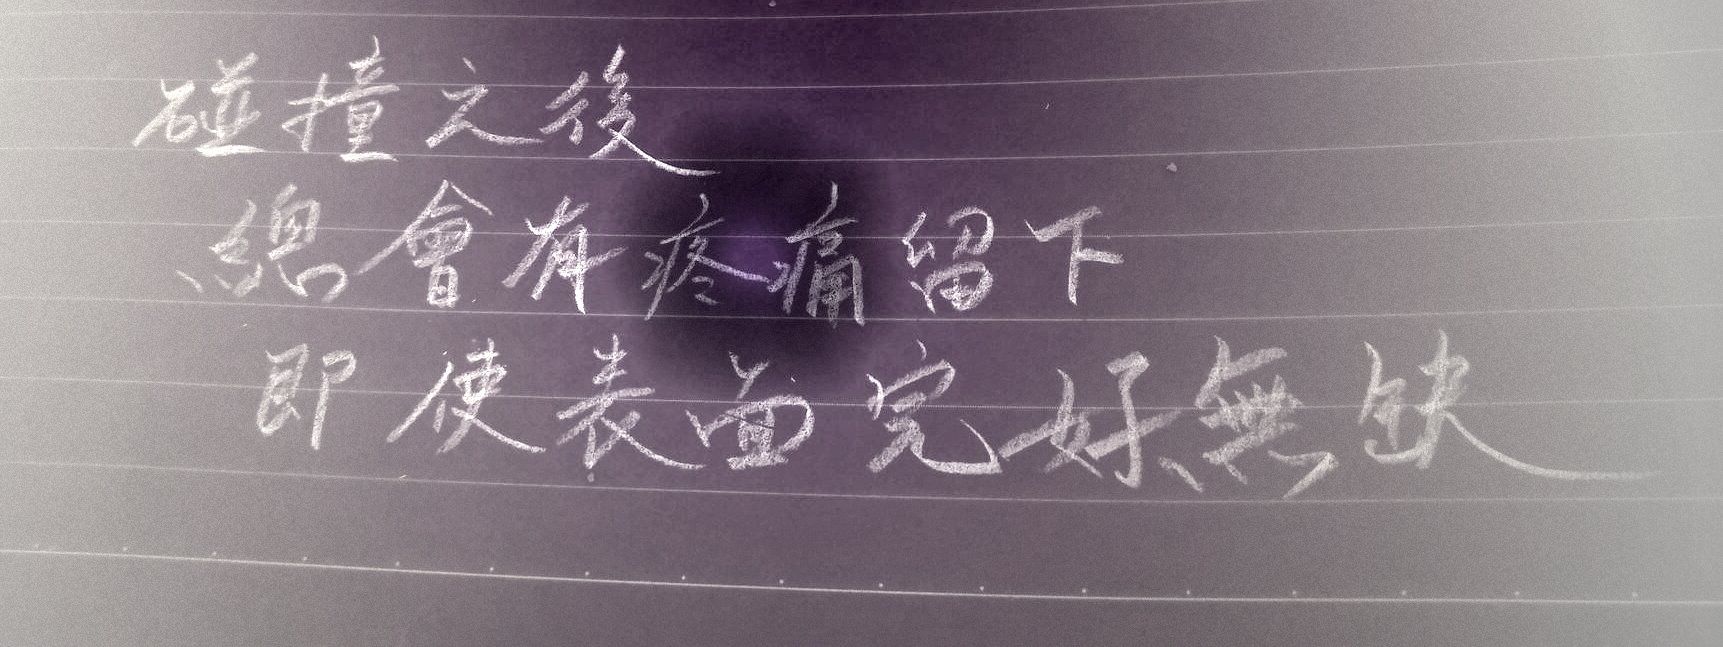 碰撞之後
總會有疼痛留下
即使表面完好無缺